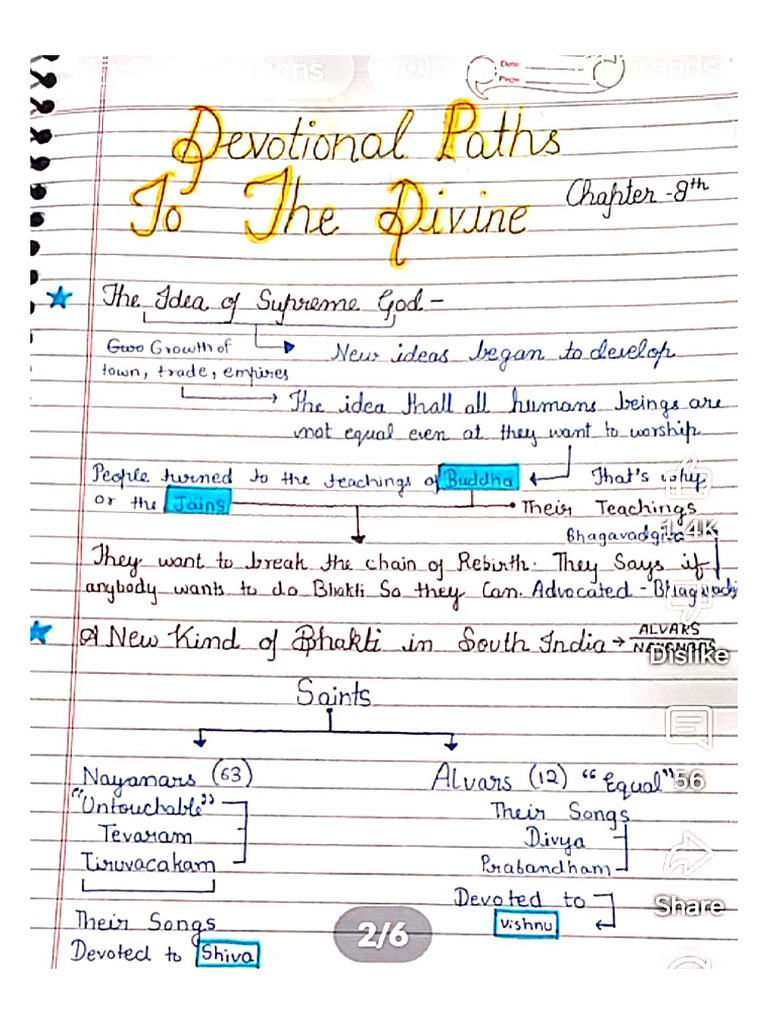 Date
Page
Devotional Paths
To The Divine
Chapter -8th
The Idea of Supreme God -
Growth of
town, trade, empires
New ideas began to develop
The idea thall all humans beings are
not equal even at they want to worship
People turned to the teachings of Buddha
That's why
or the Jains
Their Teachings
Bhagavadgita
1.4K
They want to break the chain of Rebirth. They Says if
anybody wants to do Bhakti So they Can. Advocated -
A New Kind of Bhakti in South India → ALVARS
NAYANARS
Dislike
Saints
Nayanars (63)
Alvars (12) "Equal"
56
"Untouchable"
Their Songs
Tevaram
Divya
Tiruvacakam
Prabandham
Devoted to
Share
Their Songs
Vishnu
2/6
Devoted to Shiva